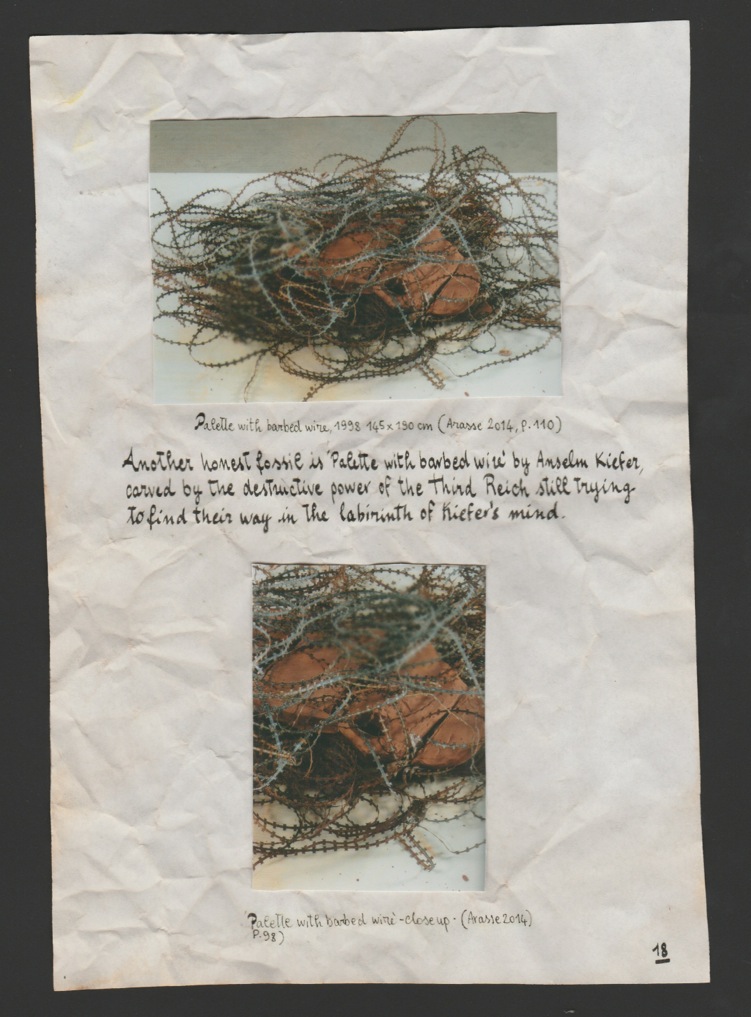 Palette with barbed wire, 1998 145x190 cm (Arasse 2014, P.110)
Another honest fossil is 'Palette with barbed wire' by Anselm Kiefer,
carved by the destructive power of the Third Reich still trying
to find their way in the labirinth of Kiefer's mind.
'Palette with barbed wire' - close up - (Arasse 2014)
P.98)
18